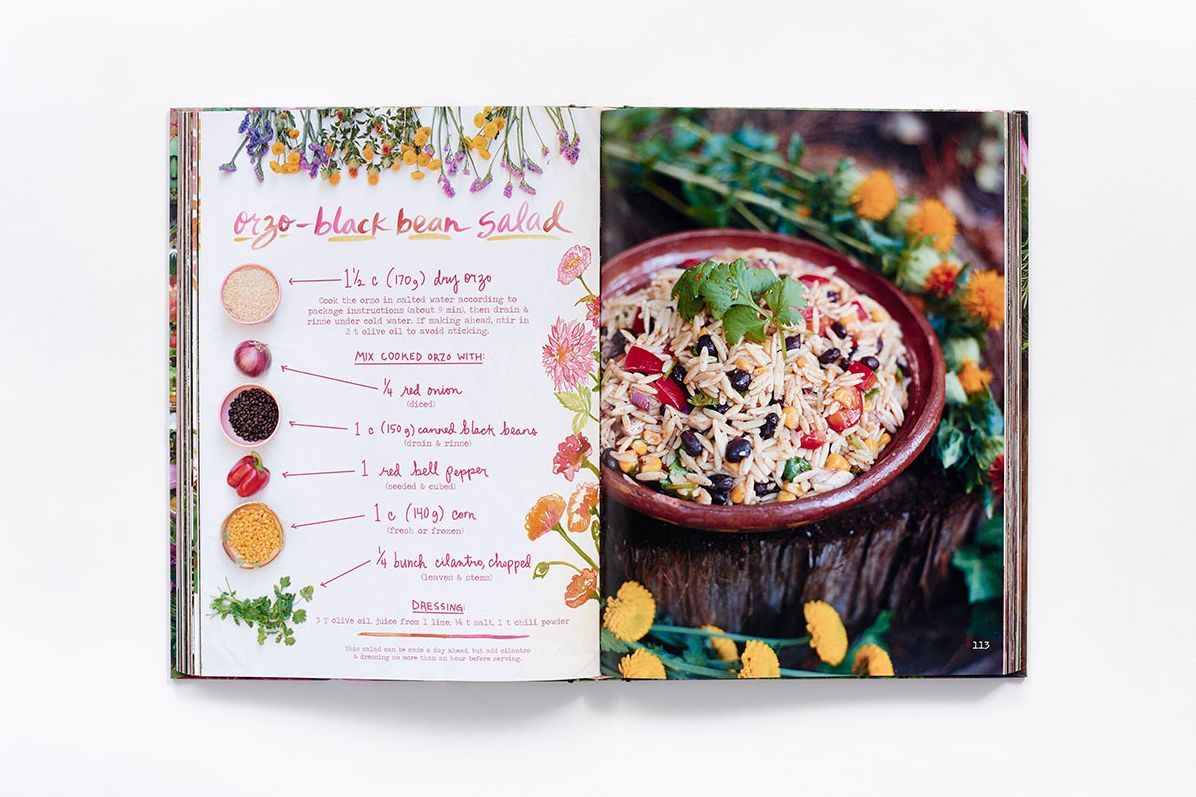 orzo-black bean salad
1½ c (170g) dry orzo
Cook the orzo in salted water according to
package instructions (about 9 min), then drain &
rinse under cold water. If making ahead, stir in
2 t olive oil to avoid sticking.
MIX COOKED ORZO WITH:
¼ red onion
(diced)
1 c (150g) canned black beans
(drain & rinse)
1 red bell pepper
(seeded & cubed)
1 c (140g) corn
(fresh or frozen)
¼ bunch cilantro, chopped
(leaves & stems)
DRESSING:
3 T olive oil, juice from 1 lime, ¼ t salt, 1 t chili powder
This salad can be made a day ahead, but add cilantro
& dressing no more than an hour before serving.
113